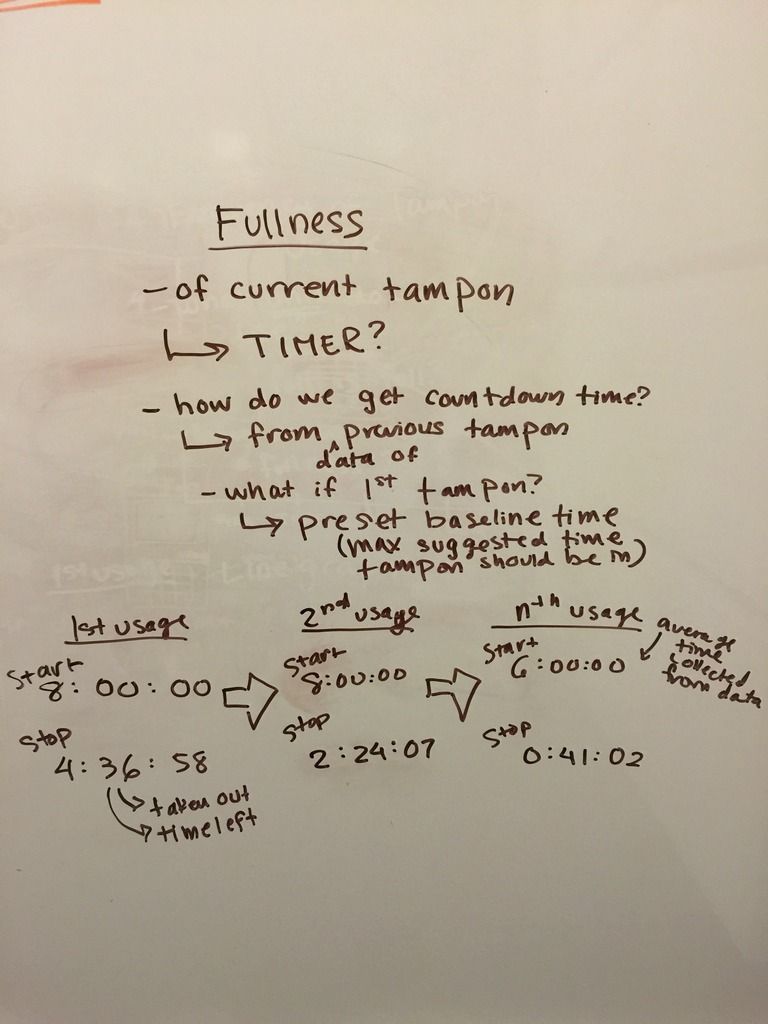 Fullness
- of current tampon
↳ TIMER?
- how do we get countdown time?
↳ from ^ previous tampon
data of
- what if 1st tampon?
↳ preset baseline time
(max suggested time
tampon should be in)
1st usage
start
8:00:00
stop
4:36:58
↳ taken out
→ time left
2nd usage
start
8:00:00
stop
2:24:07
nth usage
start
6:00:00
average
time
collected
from data
stop
0:41:02